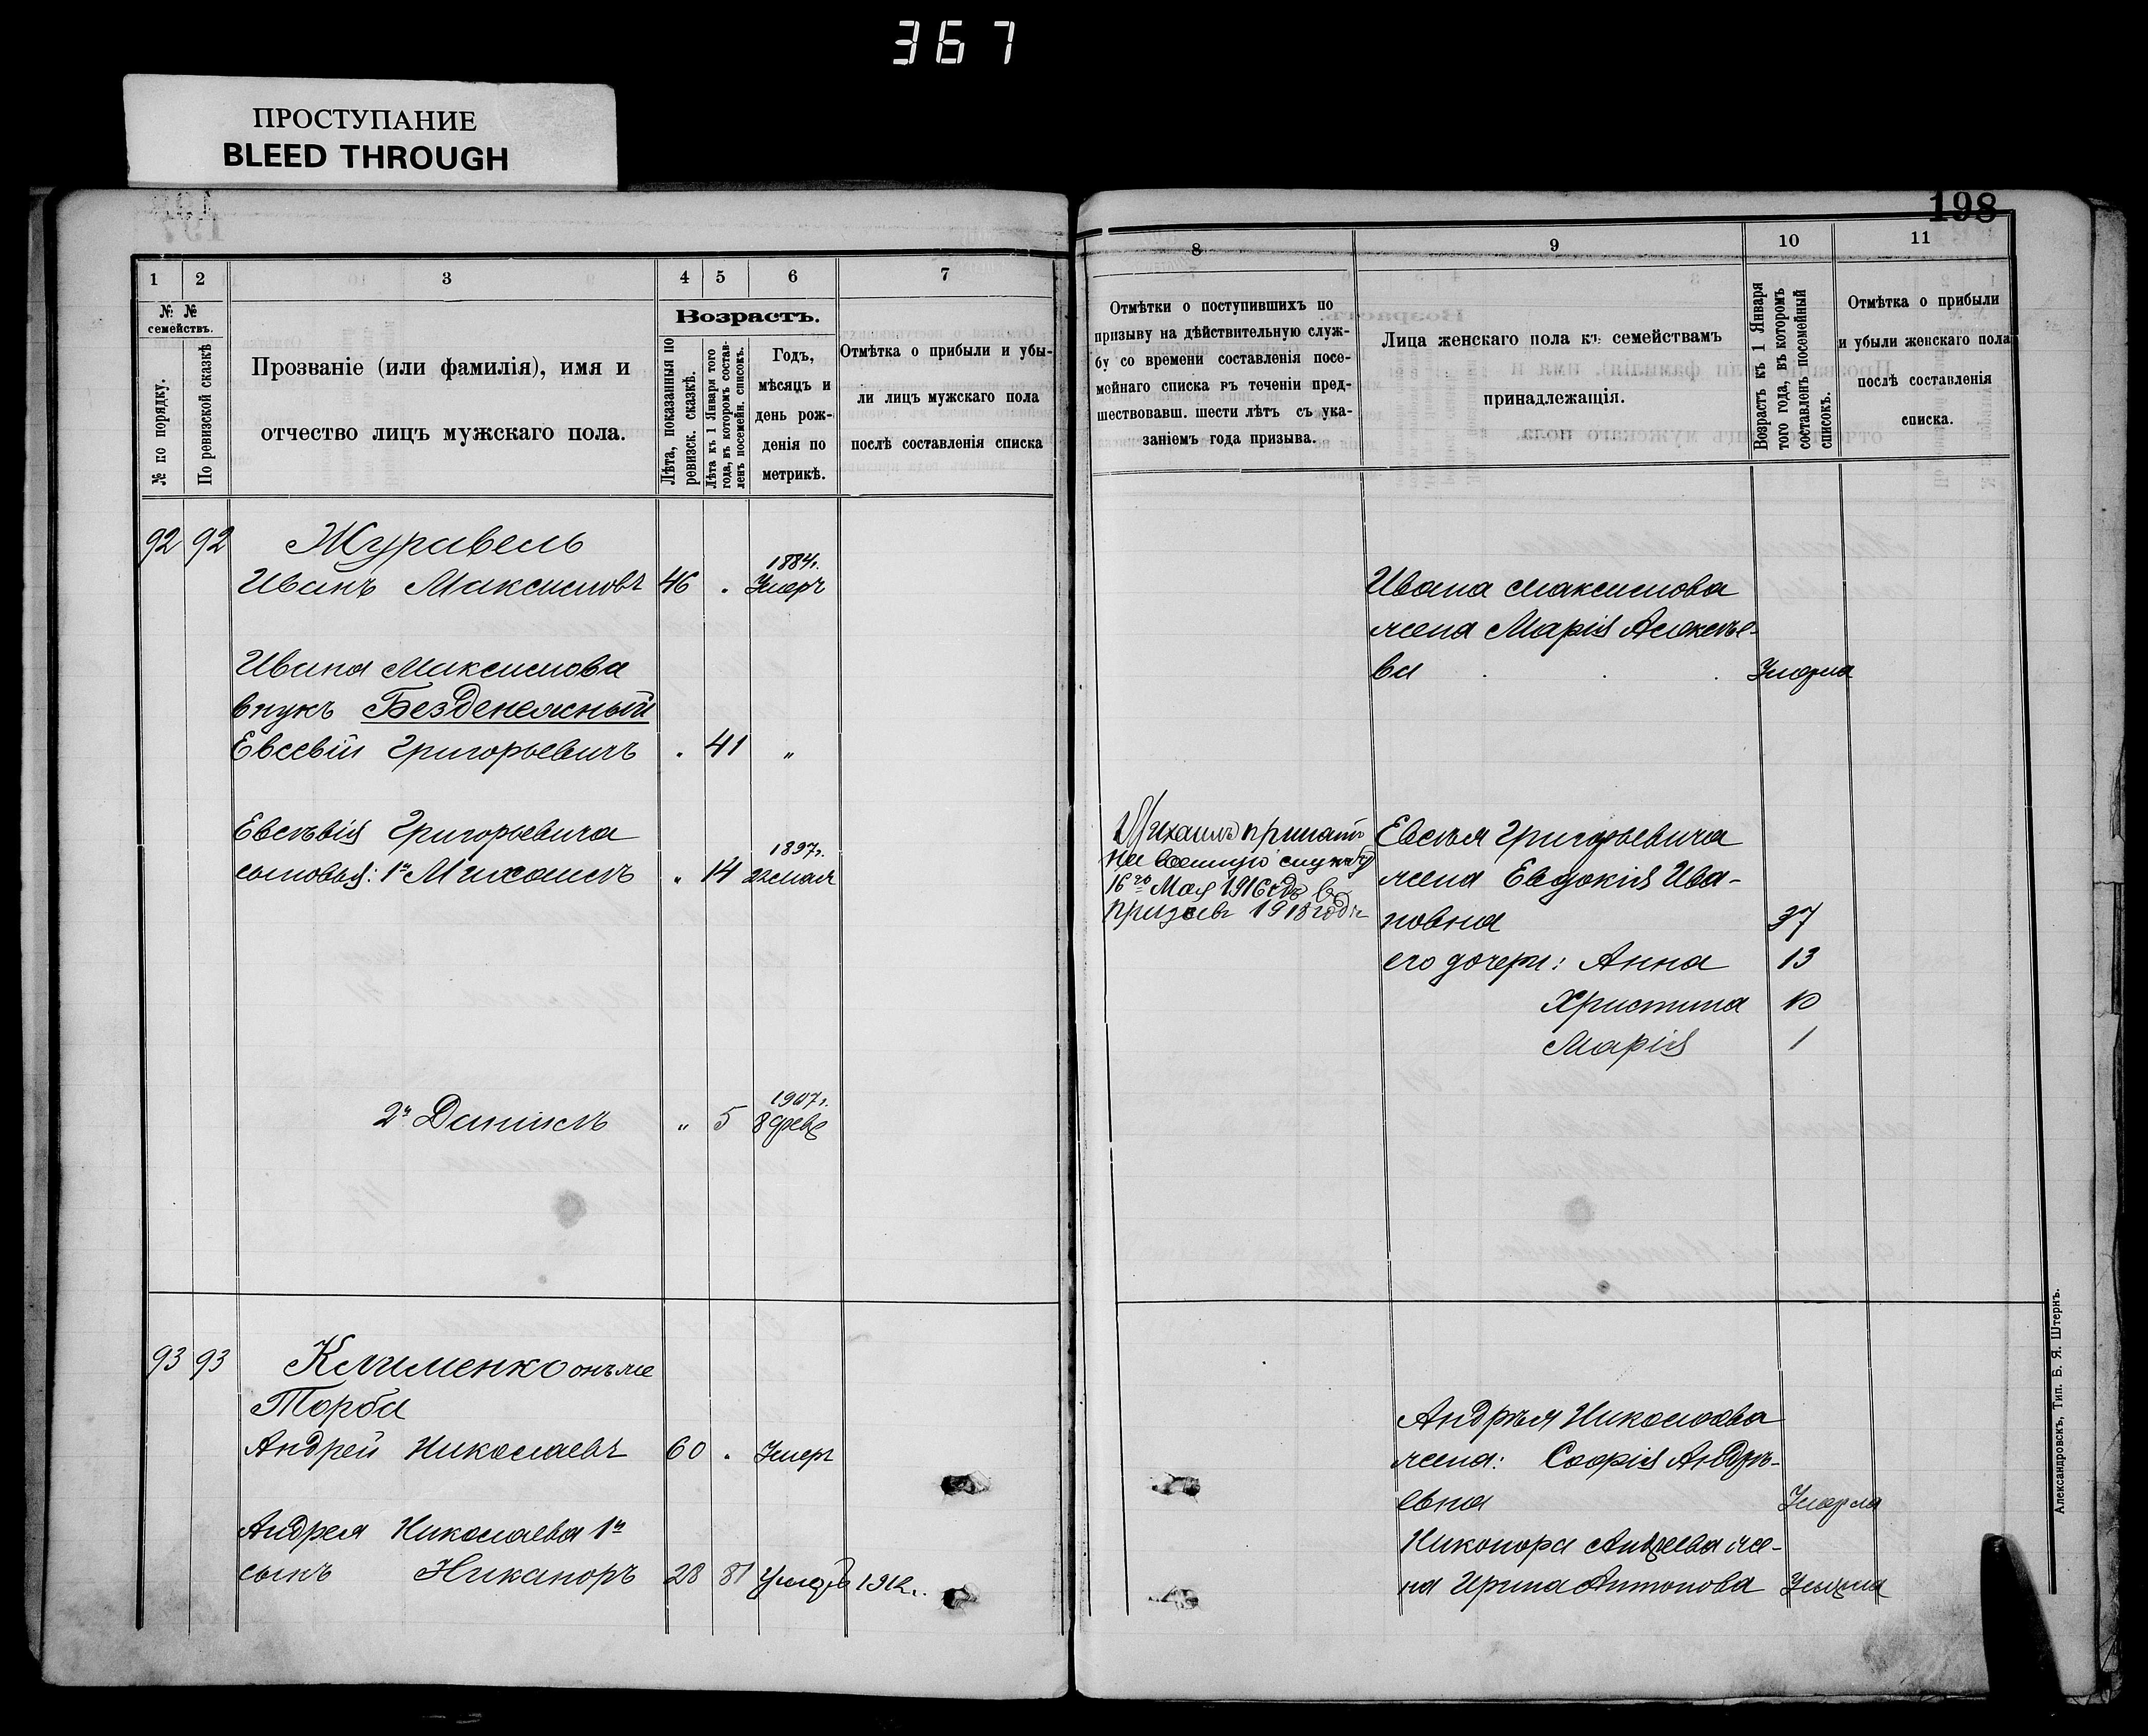 367
ПРОСТУПАНИЕ
BLEED THROUGH
198
1 2 3 4 5 6 7
№ № семействъ.
№ по порядку.
По ревизской сказкѣ
Прозваніе (или фамилія), имя и
отчество лицъ мужскаго пола.
Возрастъ.
Лѣта, показанныя по
ревизск. сказкѣ.
Лѣта къ 1 Января того
года, въ которомъ состав-
ленъ посемейн. списокъ.
Годъ,
мѣсяцъ и
день рож-
денія по
метрикѣ.
Отмѣтка о прибыли и убы-
ли лицъ мужскаго пола
послѣ составленія списка
92 92 Журавель
1884г.
Иванъ Максимовъ 46 . Умеръ
Ивана Максимова
внукъ Безденежный
Евсевій Григорьевичъ . 41 „
Евсѣвія Григорьевича
1897г.
сыновья: 1й Михаилъ „ 14 22 мая
1907г.
2й Даніилъ „ 5 8 февр
93 93 Клименко онъ же
Торба
Андрей Николаевъ 60 . Умеръ
Андрея Николаева 1й
сынъ Никаноръ 28 81 Умеръ 1912г.
8 9 10 11
Отмѣтки о поступившихъ по
призыву на дѣйствительную служ-
бу со времени составленія посе-
мейнаго списка въ теченіи пред-
шествовавш. шести лѣтъ съ ука-
заніемъ года призыва.
Лица женскаго пола къ семействамъ
принадлежащія.
Возрастъ къ 1 Января
того года, въ которомъ
составленъ посемейный
списокъ.
Отмѣтка о прибыли
и убыли женскаго пола
послѣ составленія
списка.
Ивана Максимова
жена Марія Алексѣе-
ва . . . Умерла
Михаилъ принятъ
на военную службу
16го Мая 1916 года въ
призывъ 1918 года
Евсѣя Григорьевича
жена Евдокія Ива-
новна 37
его дочери: Анна 13
Христина 10
Марія 1
Андрѣя Николаева
жена: Софія Андрѣ-
евна Умерла
Никонора Андреева же-
на Ирина Антонова Умерла
Александровскъ, Тип. Б. Я. Штернъ.